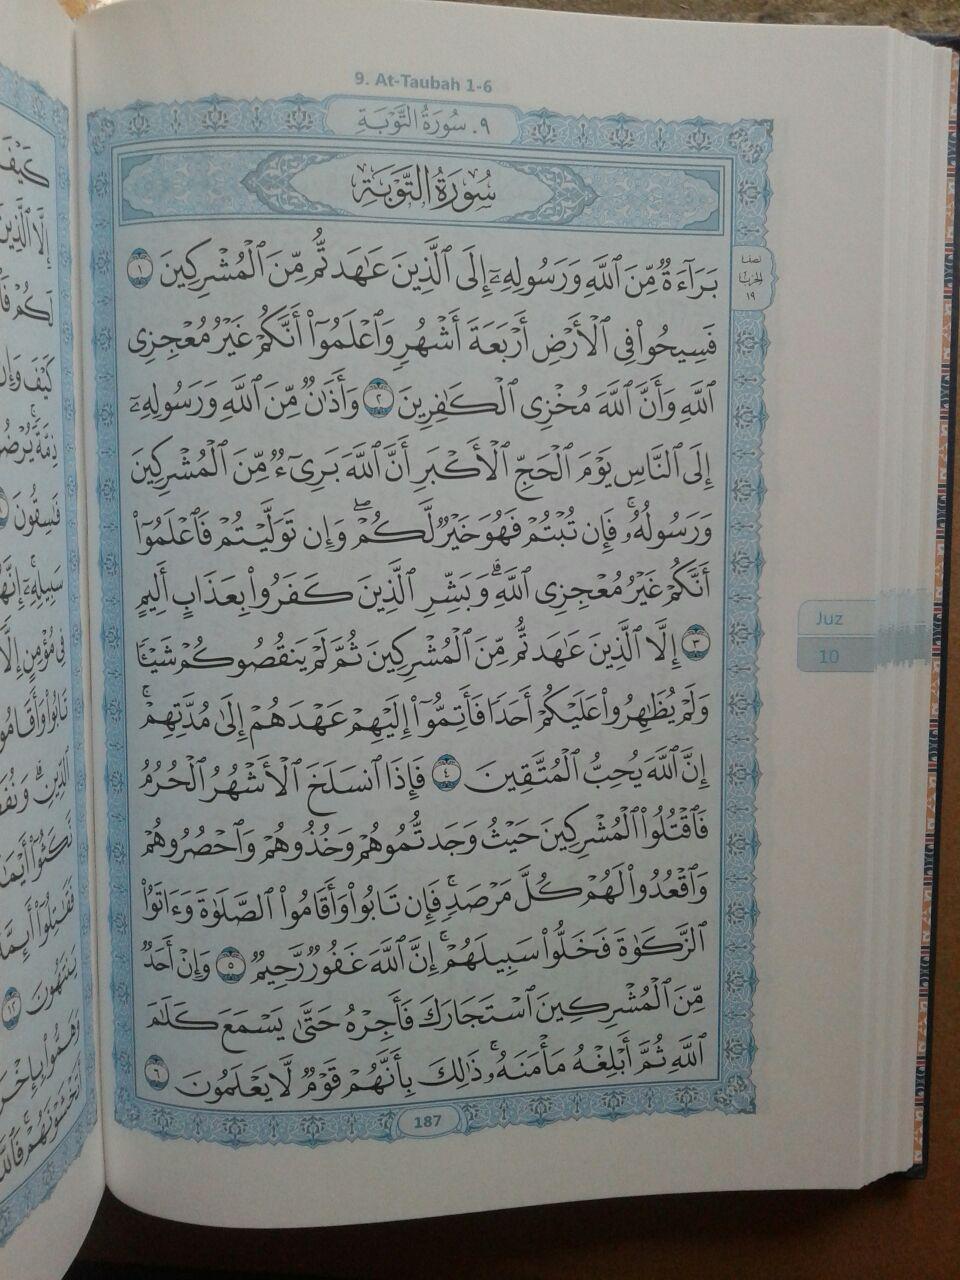 9. At-Taubah 1-6
٩. سُورَةُ التَّوْبَةِ
سُورَةُ التَّوْبَةِ
بَرَآءَةٌ مِّنَ ٱللَّهِ وَرَسُولِهِۦٓ إِلَى ٱلَّذِينَ عَٰهَدتُّم مِّنَ ٱلْمُشْرِكِينَ ١
نصف الحزب ١٩
فَسِيحُوا۟ فِى ٱلْأَرْضِ أَرْبَعَةَ أَشْهُرٍ وَٱعْلَمُوٓا۟ أَنَّكُمْ غَيْرُ مُعْجِزِى
ٱللَّهِ وَأَنَّ ٱللَّهَ مُخْزِى ٱلْكَٰفِرِينَ ٢ وَأَذَٰنٌ مِّنَ ٱللَّهِ وَرَسُولِهِۦٓ
إِلَى ٱلنَّاسِ يَوْمَ ٱلْحَجِّ ٱلْأَكْبَرِ أَنَّ ٱللَّهَ بَرِىٓءٌ مِّنَ ٱلْمُشْرِكِينَ
وَرَسُولُهُۥ ۚ فَإِن تُبْتُمْ فَهُوَ خَيْرٌ لَّكُمْ ۖ وَإِن تَوَلَّيْتُمْ فَٱعْلَمُوٓا۟
أَنَّكُمْ غَيْرُ مُعْجِزِى ٱللَّهِ ۗ وَبَشِّرِ ٱلَّذِينَ كَفَرُوا۟ بِعَذَابٍ أَلِيمٍ
٣ إِلَّا ٱلَّذِينَ عَٰهَدتُّم مِّنَ ٱلْمُشْرِكِينَ ثُمَّ لَمْ يَنقُصُوكُمْ شَيْـًٔا
وَلَمْ يُظَٰهِرُوا۟ عَلَيْكُمْ أَحَدًا فَأَتِمُّوٓا۟ إِلَيْهِمْ عَهْدَهُمْ إِلَىٰ مُدَّتِهِمْ ۚ
إِنَّ ٱللَّهَ يُحِبُّ ٱلْمُتَّقِينَ ٤ فَإِذَا ٱنسَلَخَ ٱلْأَشْهُرُ ٱلْحُرُمُ
فَٱقْتُلُوا۟ ٱلْمُشْرِكِينَ حَيْثُ وَجَدتُّمُوهُمْ وَخُذُوهُمْ وَٱحْصُرُوهُمْ
وَٱقْعُدُوا۟ لَهُمْ كُلَّ مَرْصَدٍ ۚ فَإِن تَابُوا۟ وَأَقَامُوا۟ ٱلصَّلَوٰةَ وَءَاتَوُا۟
ٱلزَّكَوٰةَ فَخَلُّوا۟ سَبِيلَهُمْ ۚ إِنَّ ٱللَّهَ غَفُورٌ رَّحِيمٌ ٥ وَإِنْ أَحَدٌ
مِّنَ ٱلْمُشْرِكِينَ ٱسْتَجَارَكَ فَأَجِرْهُ حَتَّىٰ يَسْمَعَ كَلَٰمَ
ٱللَّهِ ثُمَّ أَبْلِغْهُ مَأْمَنَهُۥ ۚ ذَٰلِكَ بِأَنَّهُمْ قَوْمٌ لَّا يَعْلَمُونَ ٦
187
Juz
10